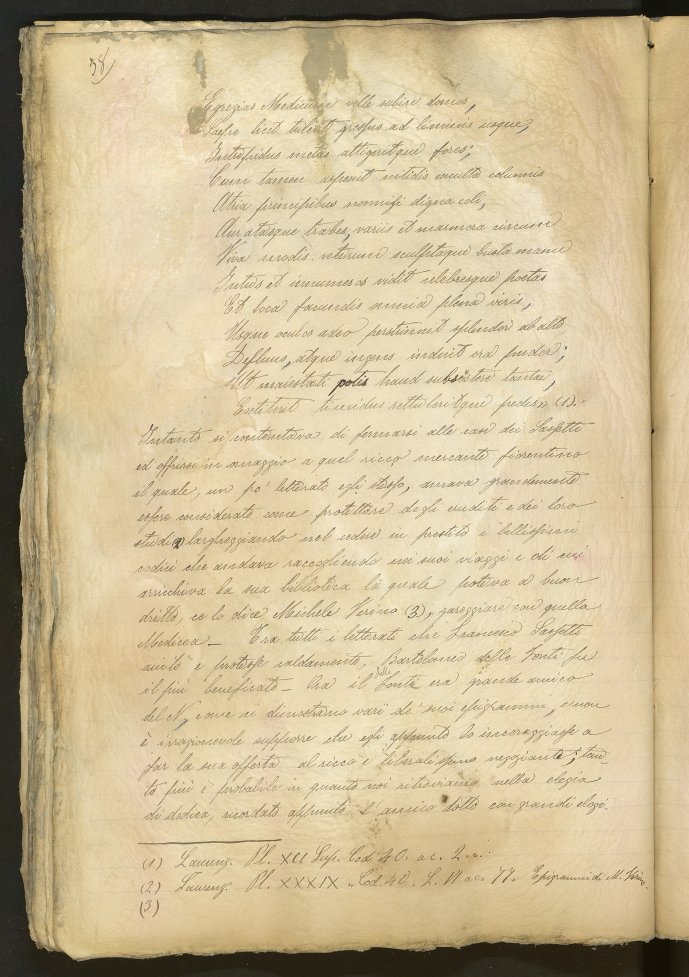 38)
Egregias Medicum velle subire domos,
Saepe licet tulerit gressus ad liminis usque,
Intrepidus metas attigeritque fores;
Cum tamen aspexit nitidis exculta columnis
Atria principibus nonnisi digna coli,
Auratasque trabes, variis et marmora circum
Viva modis: veterum sculptaque busta manu
Intus et innumeros vidit celebresque poetas
Et loca facundis omnia plena viris,
Usque oculos adeo perstinxit splendor ab alto
Defluus, atque ingens induit ora pudor;
Ut maiestati potis haud subsistere tantae,
Extiterit timidus rettuleritque pedem (1).-
Intanto si contentava di fermarsi alle case dei Sassetti
ed offrirsi in omaggio a quel ricco mercante fiorentino
il quale, un po' letterato egli stesso, amava grandemente
essere considerato come protettore degli eruditi e dei loro
studi largheggiando nel cedere in prestito i bellissimi
codici che andava raccogliendo nei suoi viaggi e di cui
arricchiva la sua biblioteca la quale poteva a buon
dritto, ce lo dice Michele Verino (3), gareggiare con quella
Medicea – Tra tutti i letterati che Francesco Sassetti
aiutò e protesse caldamente, Bartolomeo delle Fonti fu
il più beneficato – Ora il della Fonte era grande amico
del N, come ci dimostrano varii de' suoi epigrammi, e non
è irragionevole supporre che egli appunto lo incoraggiasse a
far la sua offerta al ricco e liberalissimo negoziante; tan-
to più è probabile in quanto noi ritroviamo nella elegia
di dedica, ricordato appunto l'amico dotto con grandi elogi-
(1) Laurenz. Pl. XCI Sup. Cod 40. ac. 2. r.
(2) Laurenz. Pl. XXXIX. Cod. 40. L. VI ac. 77. Epigrammi di M. Verino.
(3)